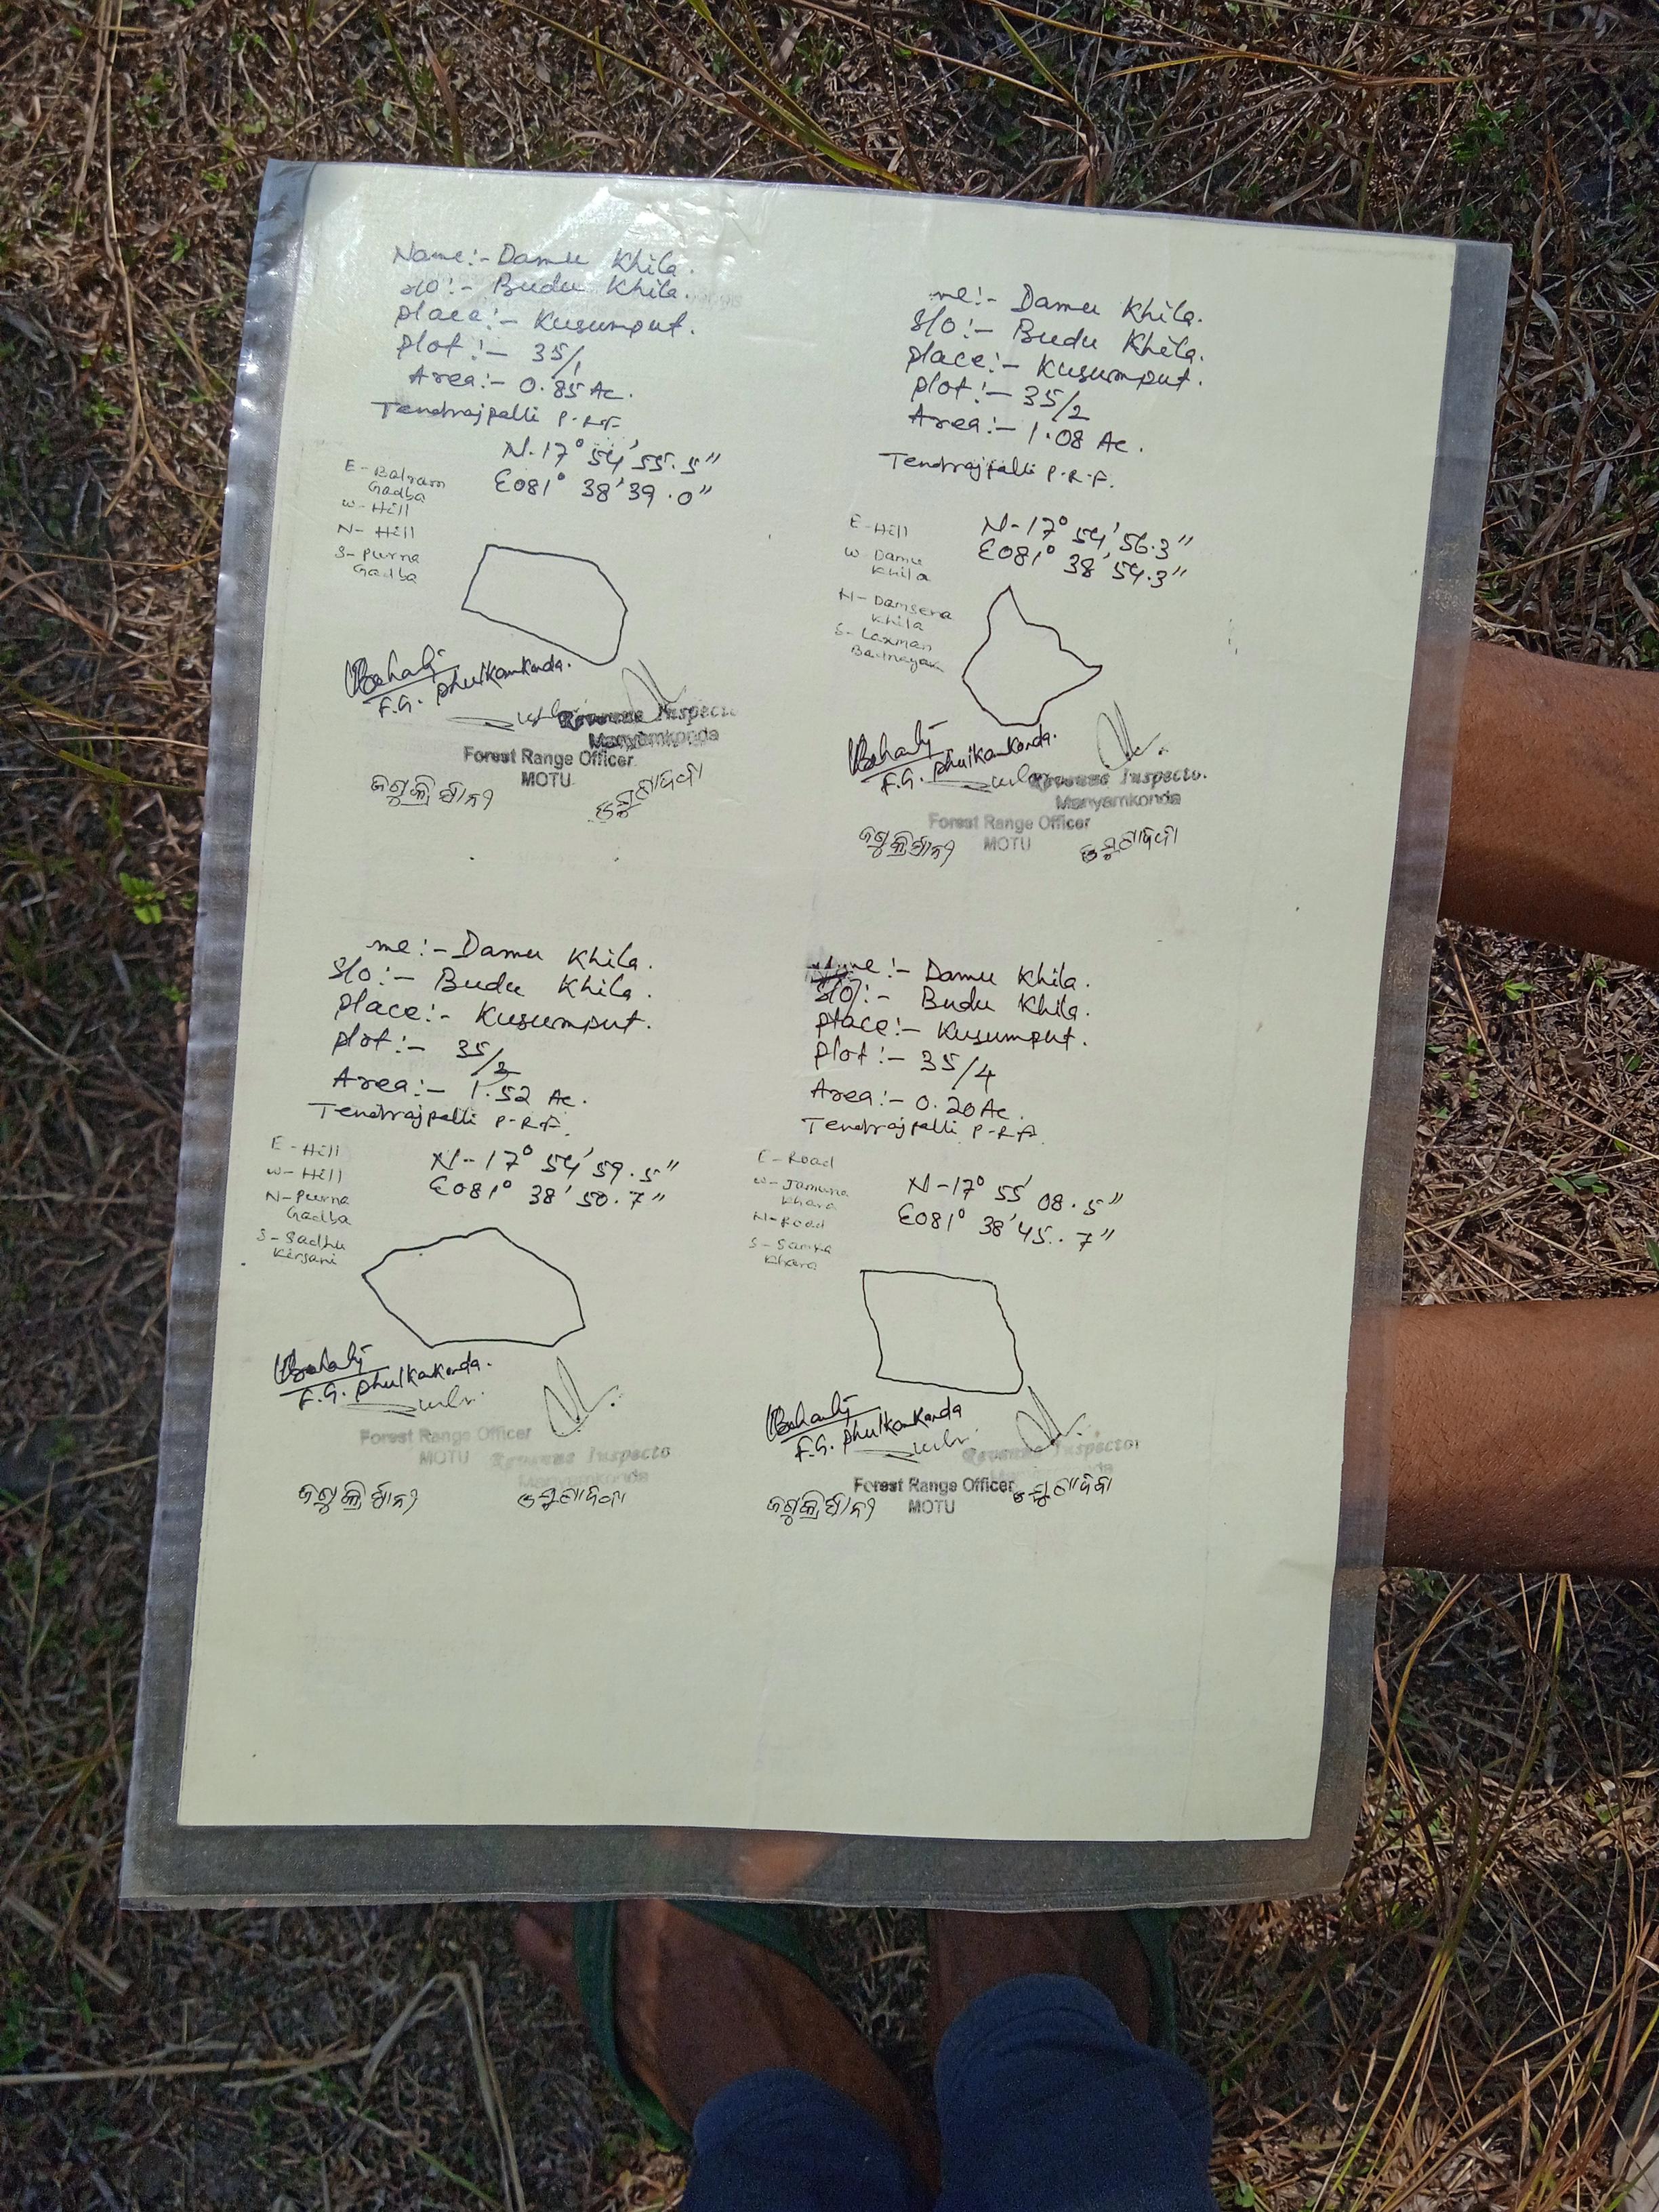 Name:- Damu Khila.
S/o:- Budu Khila.
place:- Kusumput.
plot:- 35/1
Area:- 0.85 Ac.
Tendrajpalli P.R.F
N-17° 54' 55.5"
E081° 38' 39.0"
E- Balram
Gadba
W- Hill
N- Hill
S- Purna
Gadba
F.G. Phulkamkonda.
Revenue Inspector
Manyamkonda
Forest Range Officer
MOTU
me:- Damu Khila.
S/o:- Budu Khila.
place:- Kusumput.
plot:- 35/2
Area:- 1.08 Ac.
Tendrajpalli P.R.F.
E-Hill
W- Damu
Khila
N- Damsena
Khila
S- Laxman
Badnayak
N-17° 54' 56.3"
E081° 38' 54.3"
F.G. Phulkamkonda.
Revenue Inspector
Manyamkonda
Forest Range Officer
MOTU
me:- Damu Khila.
S/o:- Budu Khila.
place:- Kusumput.
plot:- 35/3
Area:- 1.52 Ac.
Tendrajpalli P.R.F.
E-Hill
W-Hill
N-Purna
Gadba
S- Sadhu
Kirsani
N-17° 54' 59.5"
E081° 38' 50.7"
F.G. Phulkamkonda.
Forest Range Officer
MOTU
Revenue Inspector
Manyamkonda
me:- Damu Khila.
S/o:- Budu Khila.
place:- Kusumput.
plot:- 35/4
Area:- 0.20 Ac.
Tendrajpalli P.R.F.
E- Road
W- Jamuna
Khara
N- Road
S- Samna
Khara
N-17° 55' 08.5"
E081° 38' 45.7"
F.G. Phulkamkonda
Revenue Inspector
Manyamkonda
Forest Range Officer
MOTU